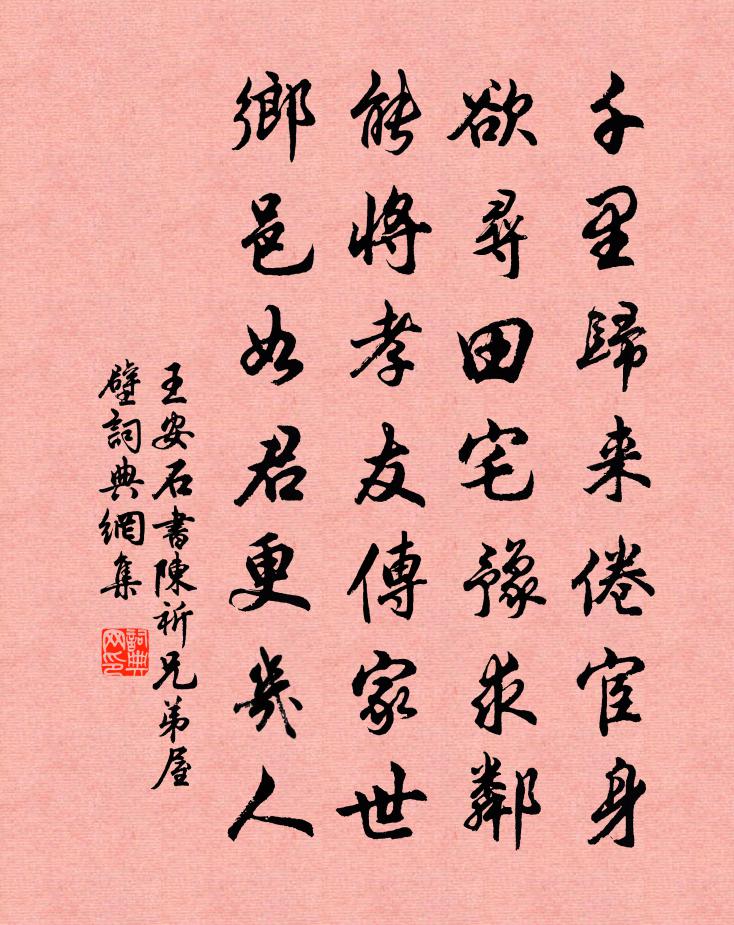 千里歸来倦宦身
欲尋田宅豫求鄰
能將孝友傳家世
鄉邑如君更幾人
王安石書陳祈兄弟屋
壁詞典網集
詞典网印